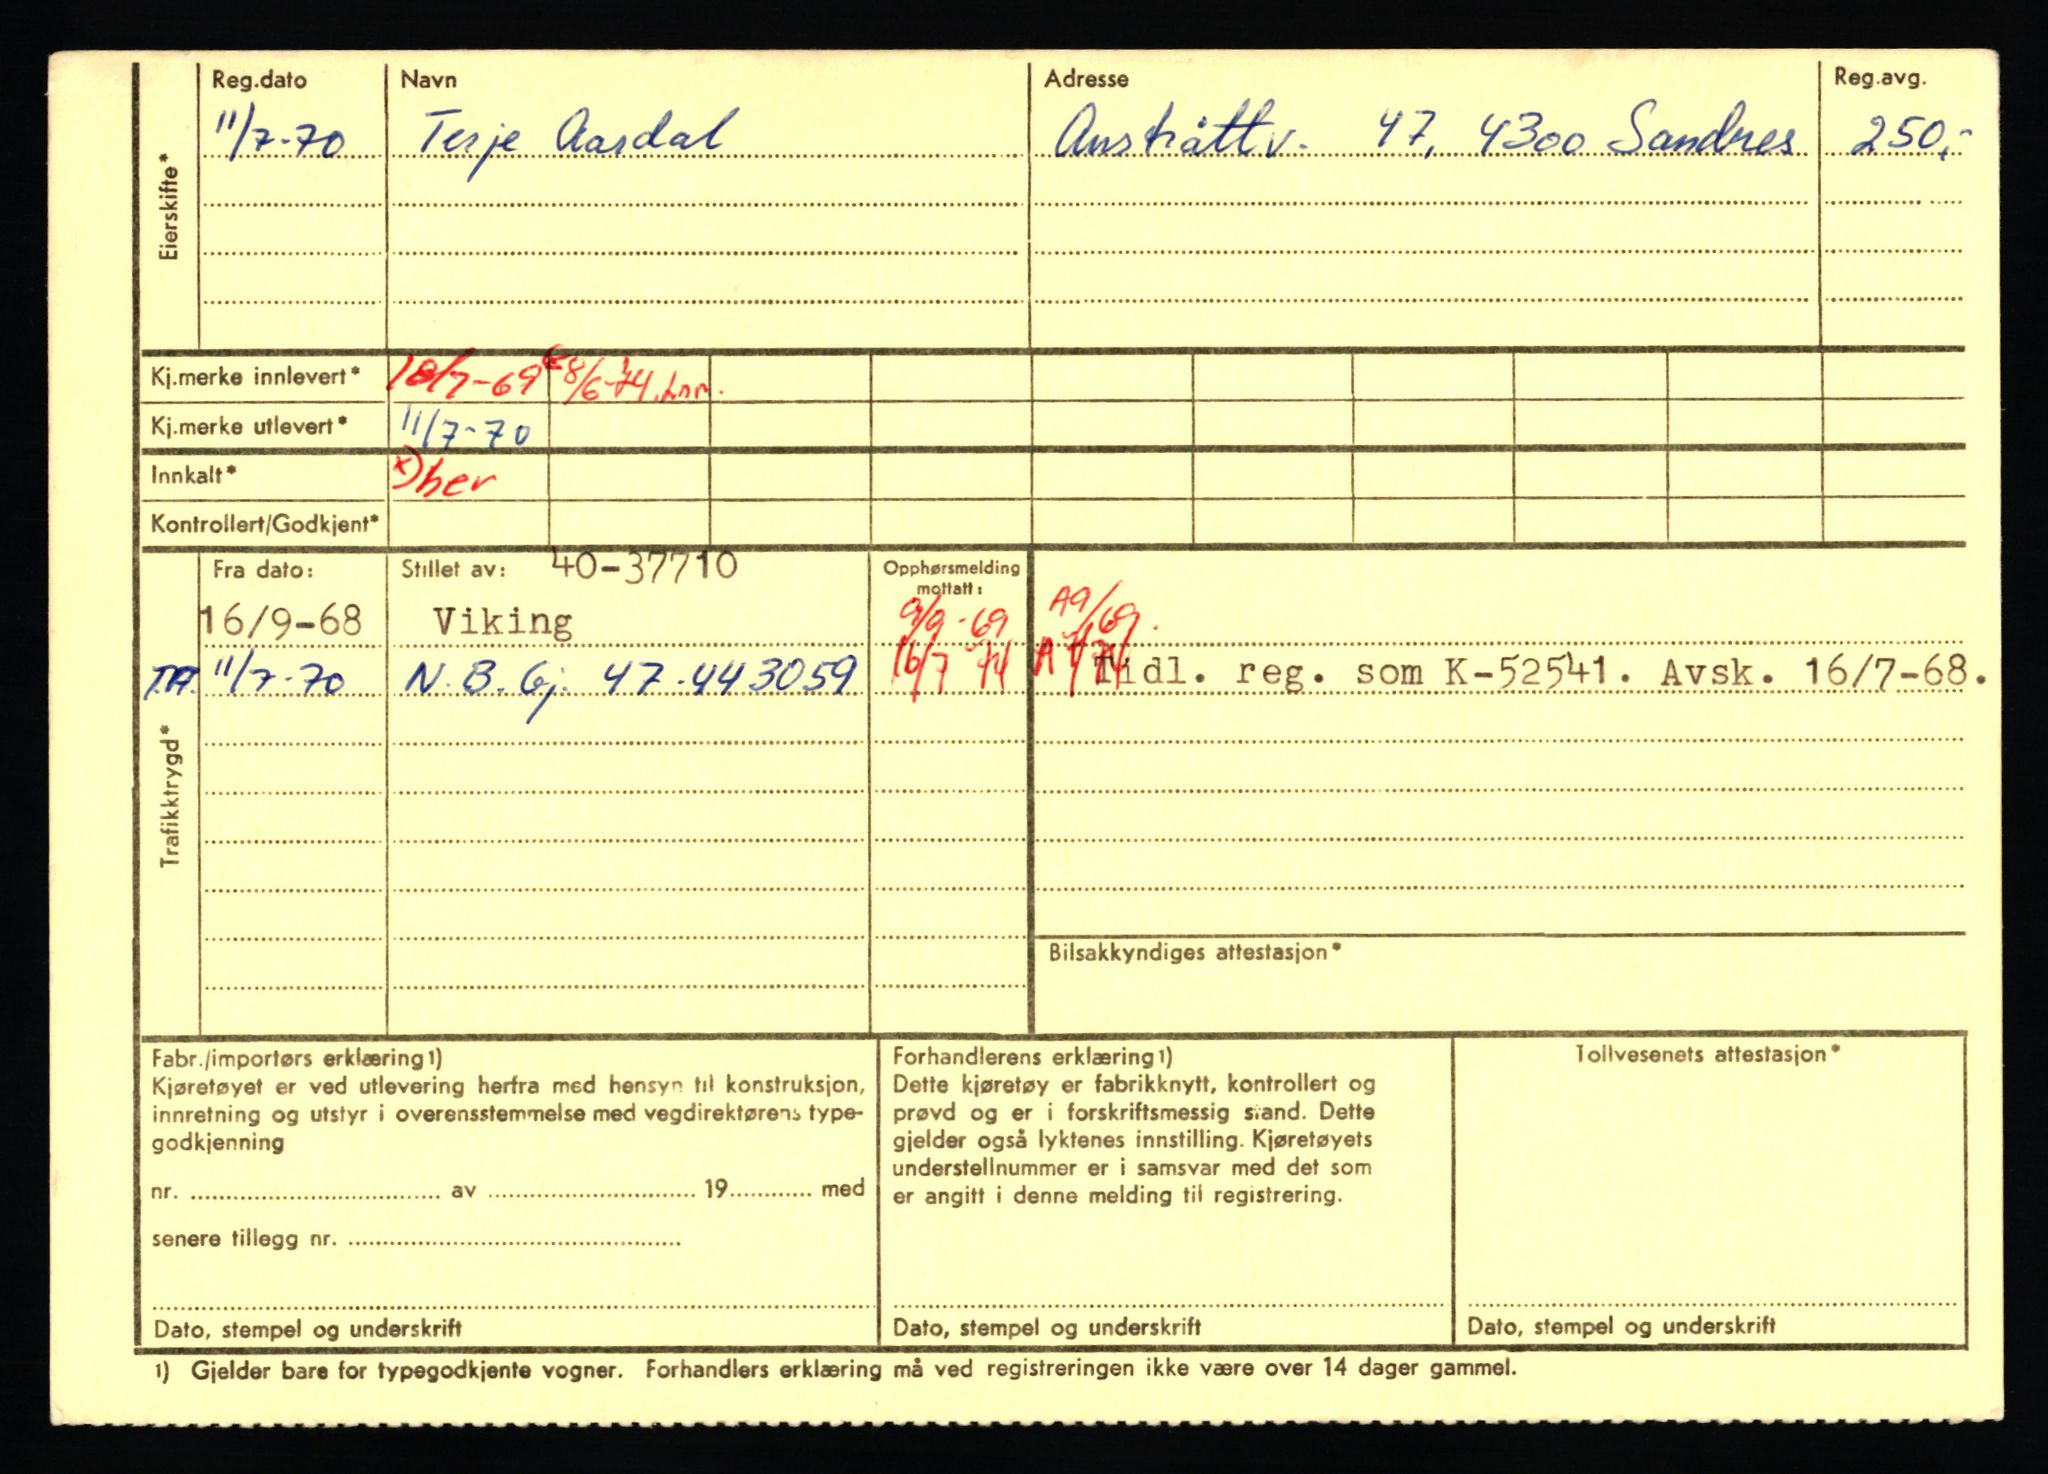 Reg.dato Navn Adresse Reg.avg.
Eierskifte*
11/7-70 Terje Aasdal Austråttv. 47, 4300 Sandnes 250,-
Kj.merke innlevert* 18/7-69 28/6-74
Kj.merke utlevert* 11/7-70
Innkalt* x) her
Kontrollert/Godkjent*
Fra dato: Stillet av: 40-37710 Opphørsmelding
mottatt:
16/9-68 Viking 9/9-69 A9/69.
T.A. 11/7-70 N.B.Gj. 47.443059 16/7 74 Tidl. reg. som K-52541. Avsk. 16/7-68.
Trafikktrygd*
Bilsakkyndiges attestasjon*
Fabr./importørs erklæring1)
Kjøretøyet er ved utlevering herfra med hensyn til konstruksjon,
innretning og utstyr i overensstemmelse med vegdirektørens type-
godkjenning
nr. .......... av .......... 19.......... med
senere tillegg nr. ..........
Dato, stempel og underskrift
Forhandlerens erklæring1)
Dette kjøretøy er fabrikknytt, kontrollert og
prøvd og er i forskriftsmessig stand. Dette
gjelder også lyktenes innstilling. Kjøretøyets
understellnummer er i samsvar med det som
er angitt i denne melding til registrering.
Dato, stempel og underskrift
Tollvesenets attestasjon*
Dato, stempel og underskrift
1) Gjelder bare for typegodkjente vogner. Forhandlers erklæring må ved registreringen ikke være over 14 dager gammel.